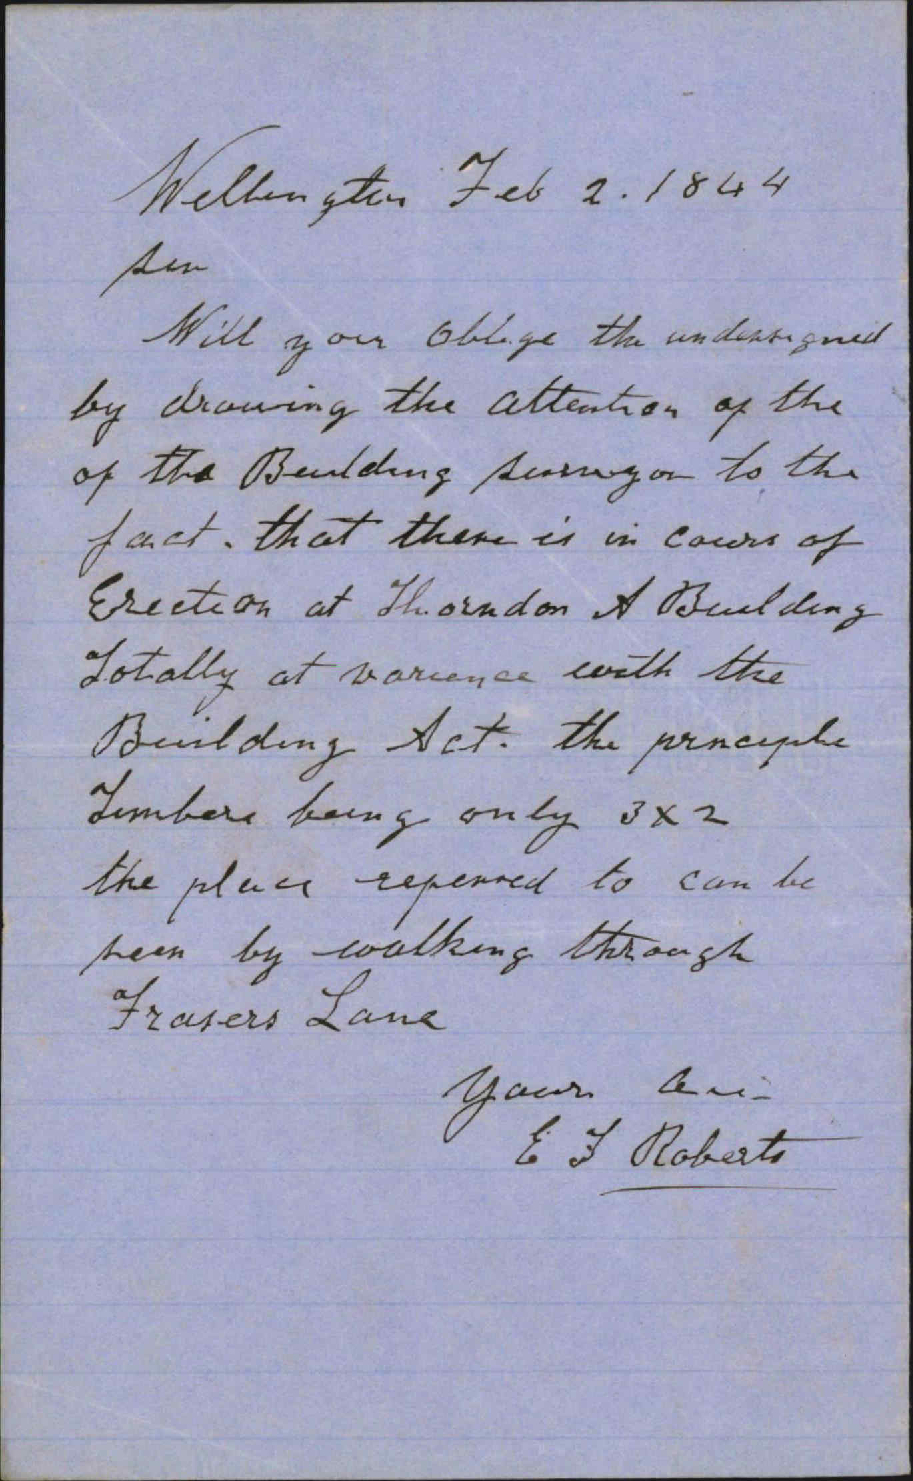 Wellington Feb 2. 1844
Sir
Will you oblige the undersigned
by drawing the attention of the
of the Building surveyor to the
fact. that there is in cours of
Erection at Thorndon A Building
Totally at varience with the
Building Act. the principle
Timbers being only 3x2
the place referred to can be
seen by walking through
Frasers Lane
Yours
E F Roberts